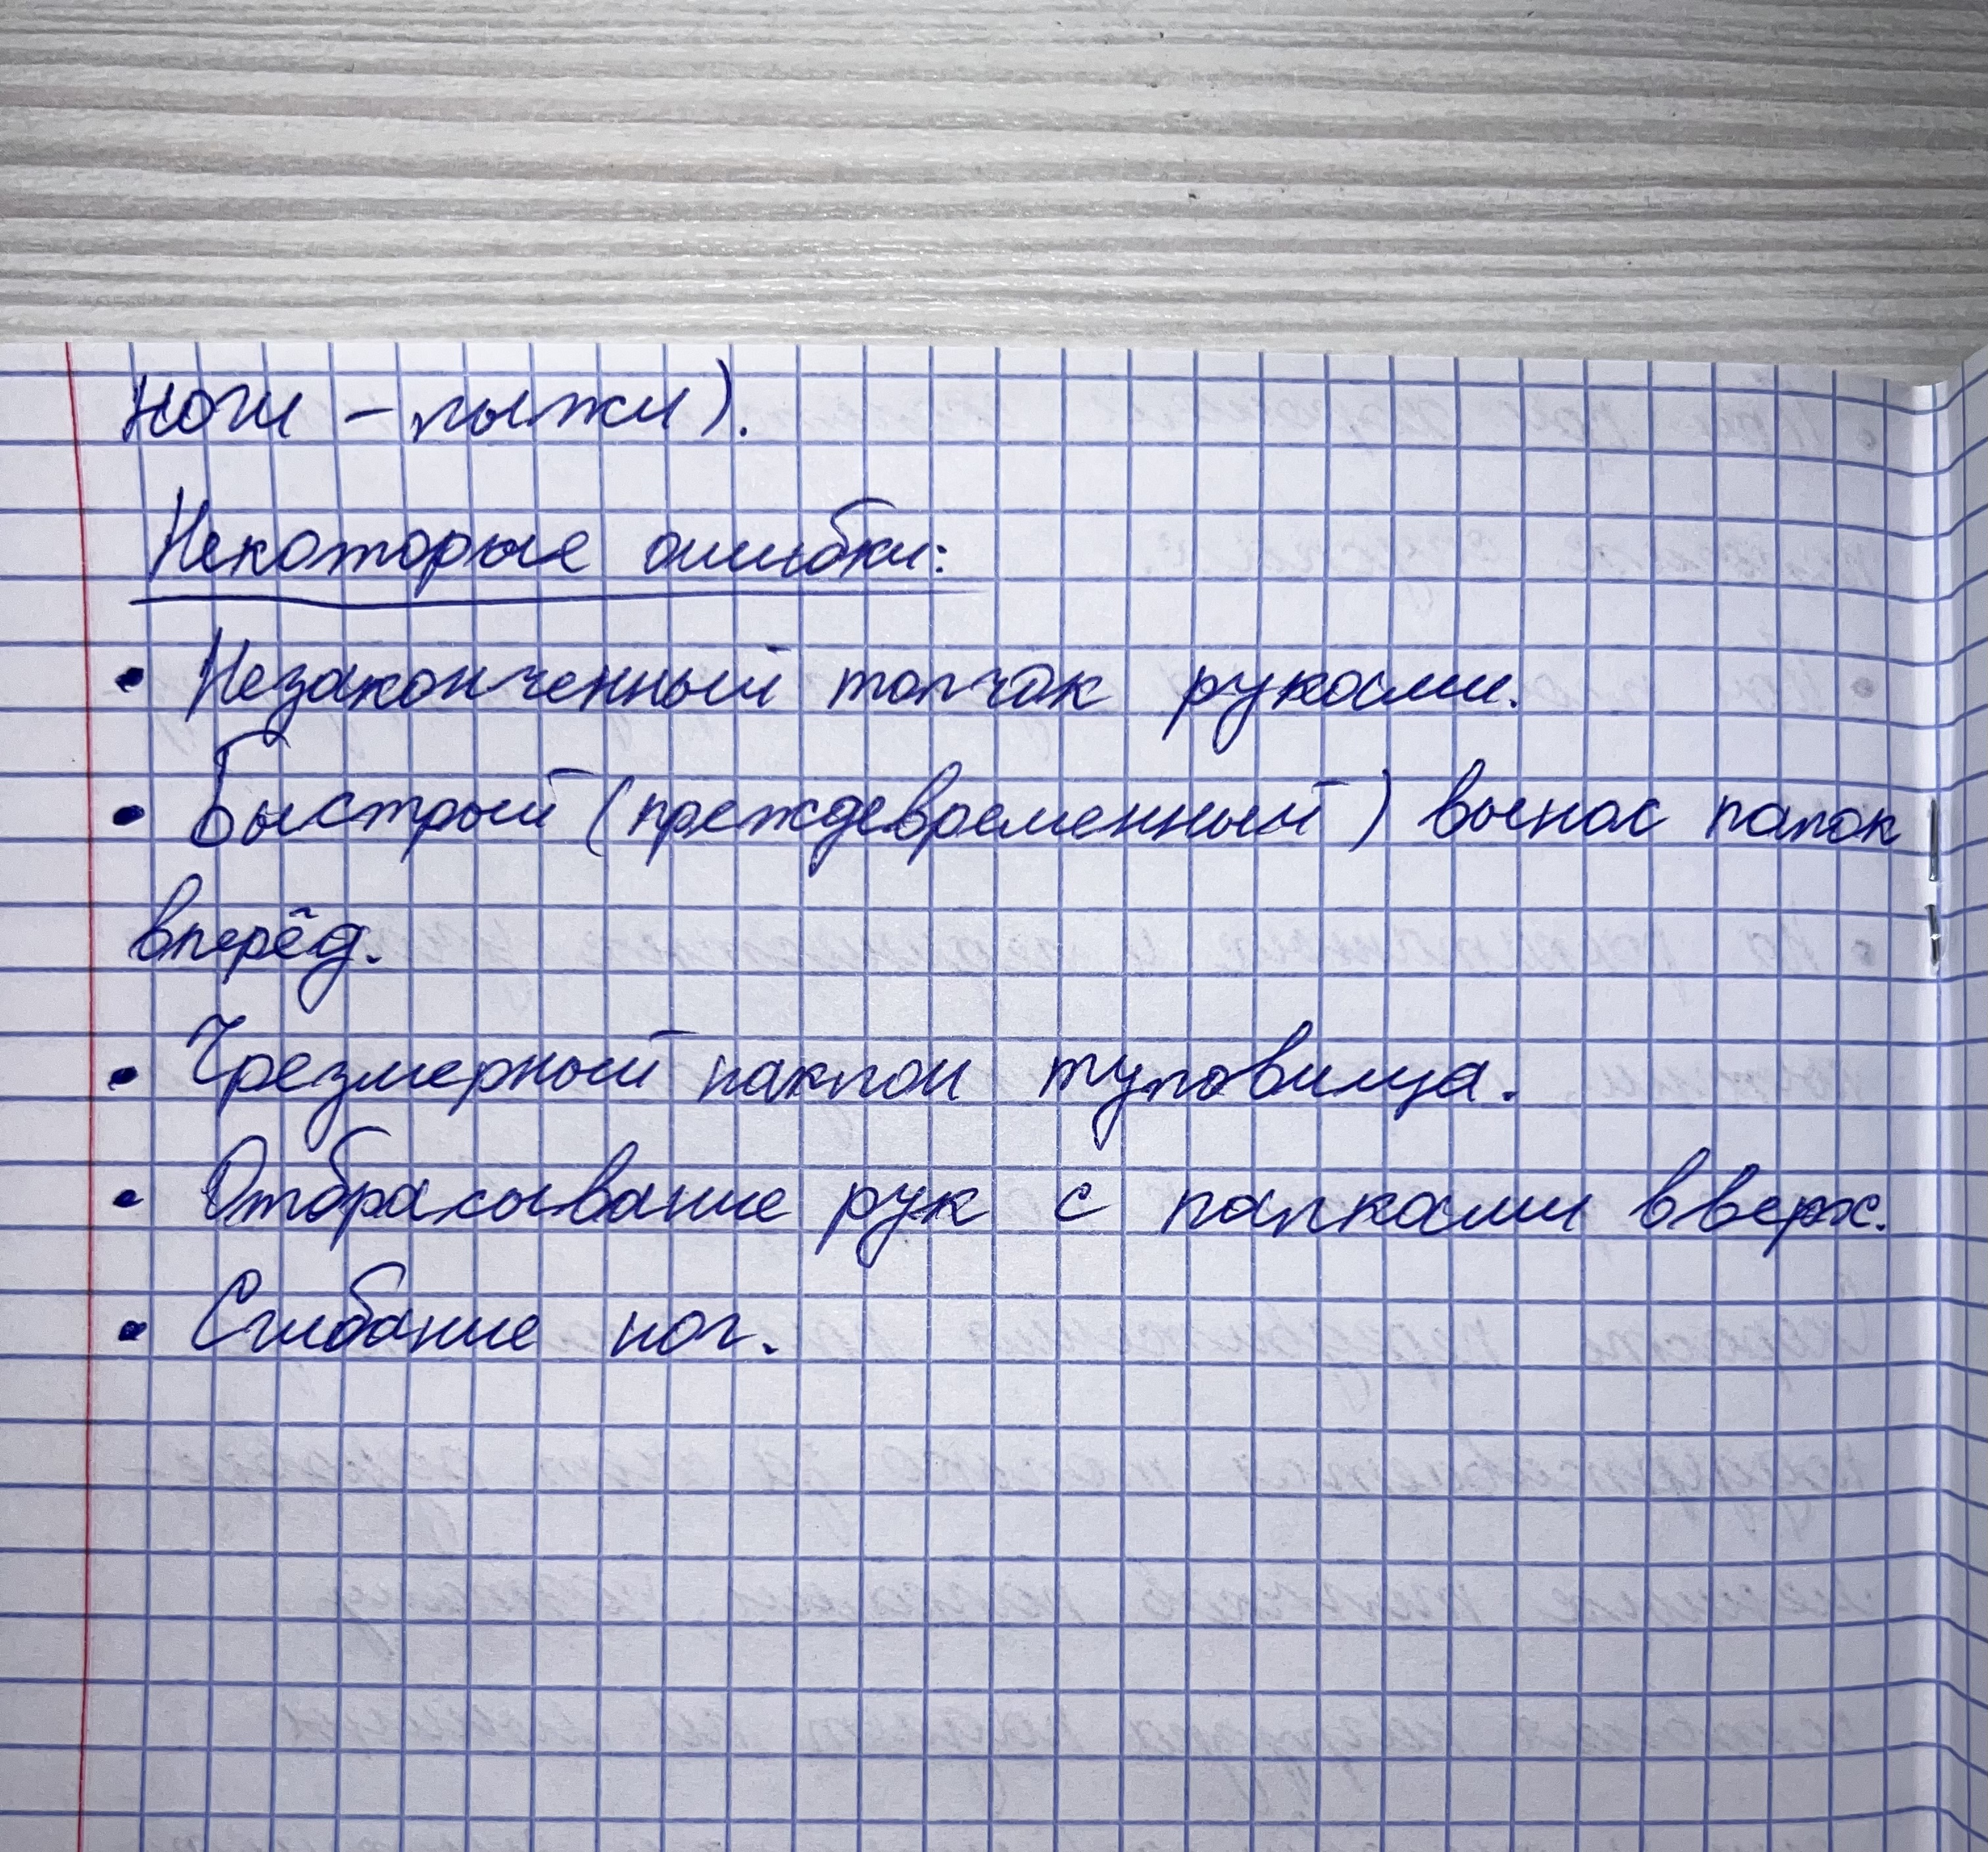 ноги – лыжи).
Некоторые ошибки:
• Незаконченный толчок руками.
• Быстрый (преждевременный) вынос палок
вперёд.
• Чрезмерный наклон туловища.
• Отбрасывание рук с палками вверх.
• Сгибание ног.